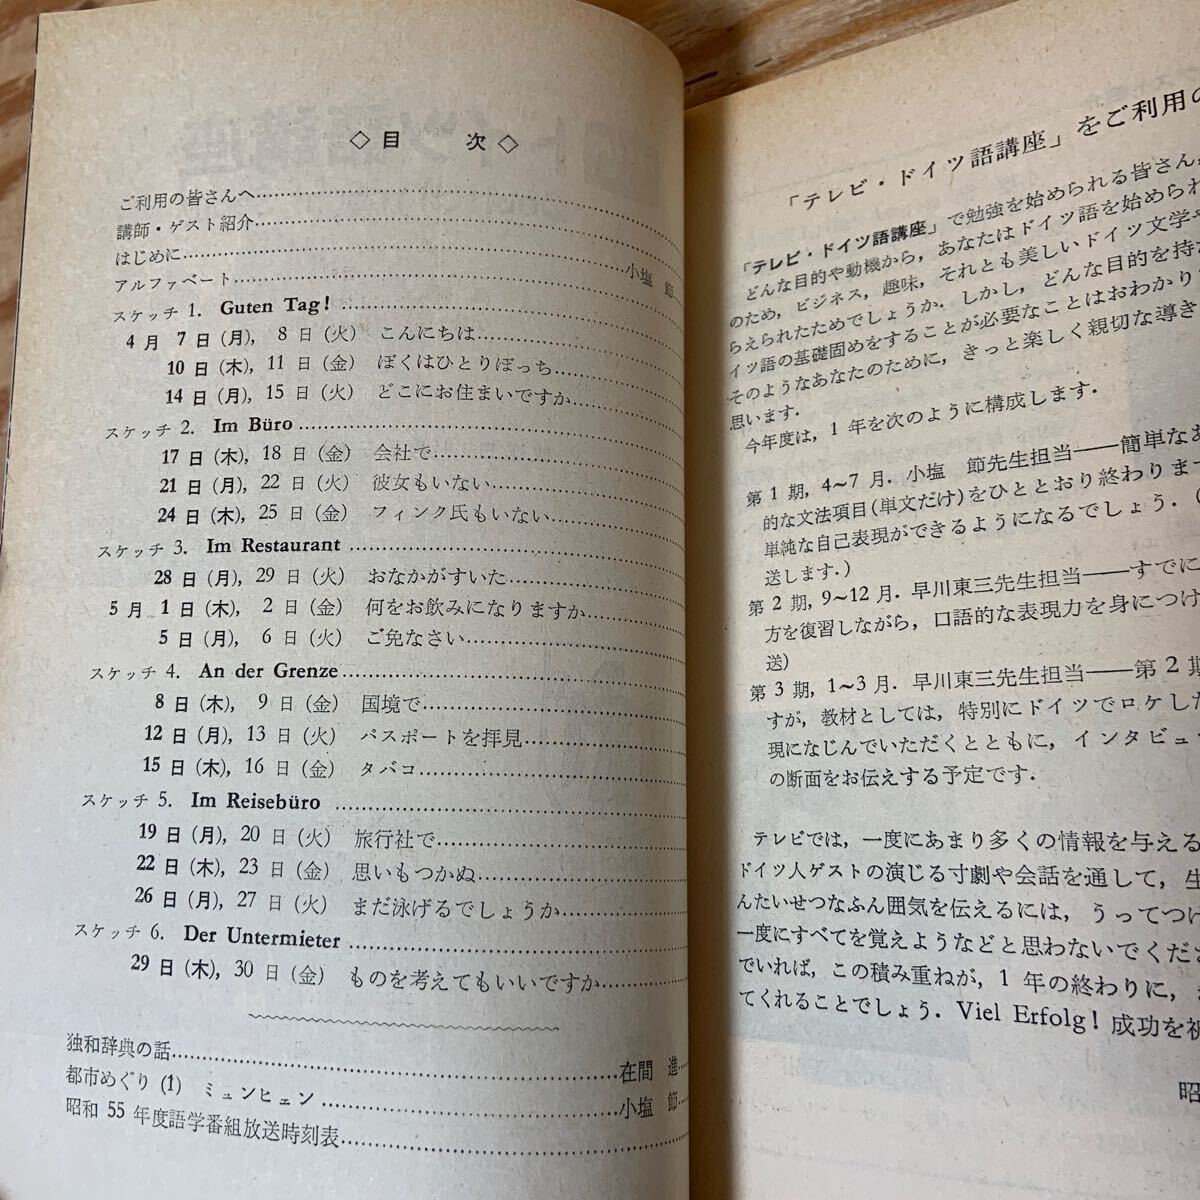 ◇目 次◇
ご利用の皆さんへ
講師・ゲスト紹介
はじめに 小塩 節
アルファベート
スケッチ 1. Guten Tag!
4月 7日(月), 8日(火) こんにちは
10日(木), 11日(金) ぼくはひとりぼっち
14日(月), 15日(火) どこにお住まいですか
スケッチ 2. Im Büro
17日(木), 18日(金) 会社で
21日(月), 22日(火) 彼女もいない
24日(木), 25日(金) フィンク氏もいない
スケッチ 3. Im Restaurant
28日(月), 29日(火) おなかがすいた
5月 1日(木), 2日(金) 何をお飲みになりますか
5日(月), 6日(火) ご免なさい
スケッチ 4. An der Grenze
8日(木), 9日(金) 国境で
12日(月), 13日(火) パスポートを拝見
15日(木), 16日(金) タバコ
スケッチ 5. Im Reisebüro
19日(月), 20日(火) 旅行社で
22日(木), 23日(金) 思いもつかぬ
26日(月), 27日(火) まだ泳げるでしょうか
スケッチ 6. Der Untermieter
29日(木), 30日(金) ものを考えてもいいですか
独和辞典の話 在間 進
都市めぐり(1) ミュンヒェン 小塩 節
昭和55年度語学番組放送時刻表
「テレビ・ドイツ語講座」をご利用の
「テレビ・ドイツ語講座」で勉強を始められる皆さん,
どんな目的や動機から, あなたはドイツ語を始められ
のため, ビジネス, 趣味, それとも美しいドイツ文学や
らえられたためでしょうか. しかし, どんな目的を持た
イツ語の基礎固めをすることが必要なことはおわかり
そのようなあなたのために, きっと楽しく親切な導き
思います.
今年度は, 1年を次のように構成します.
第1期, 4~7月. 小塩 節先生担当――簡単なあ
的な文法項目(単文だけ)をひととおり終わります
単純な自己表現ができるようになるでしょう. (
送します.)
第2期, 9~12月. 早川東三先生担当――すでに
方を復習しながら, 口語的な表現力を身につけ
送)
第3期, 1~3月. 早川東三先生担当――第2期
すが, 教材としては, 特別にドイツでロケした
現になじんでいただくとともに, インタビュー
の断面をお伝えする予定です.
テレビでは, 一度にあまり多くの情報を与える
ドイツ人ゲストの演じる寸劇や会話を通して, 生
んたいせつなふん囲気を伝えるには, うってつけ
一度にすべてを覚えようなどと思わないでくださ
でいれば, この積み重ねが, 1年の終わりに,
てくれることでしょう. Viel Erfolg! 成功を祝
昭